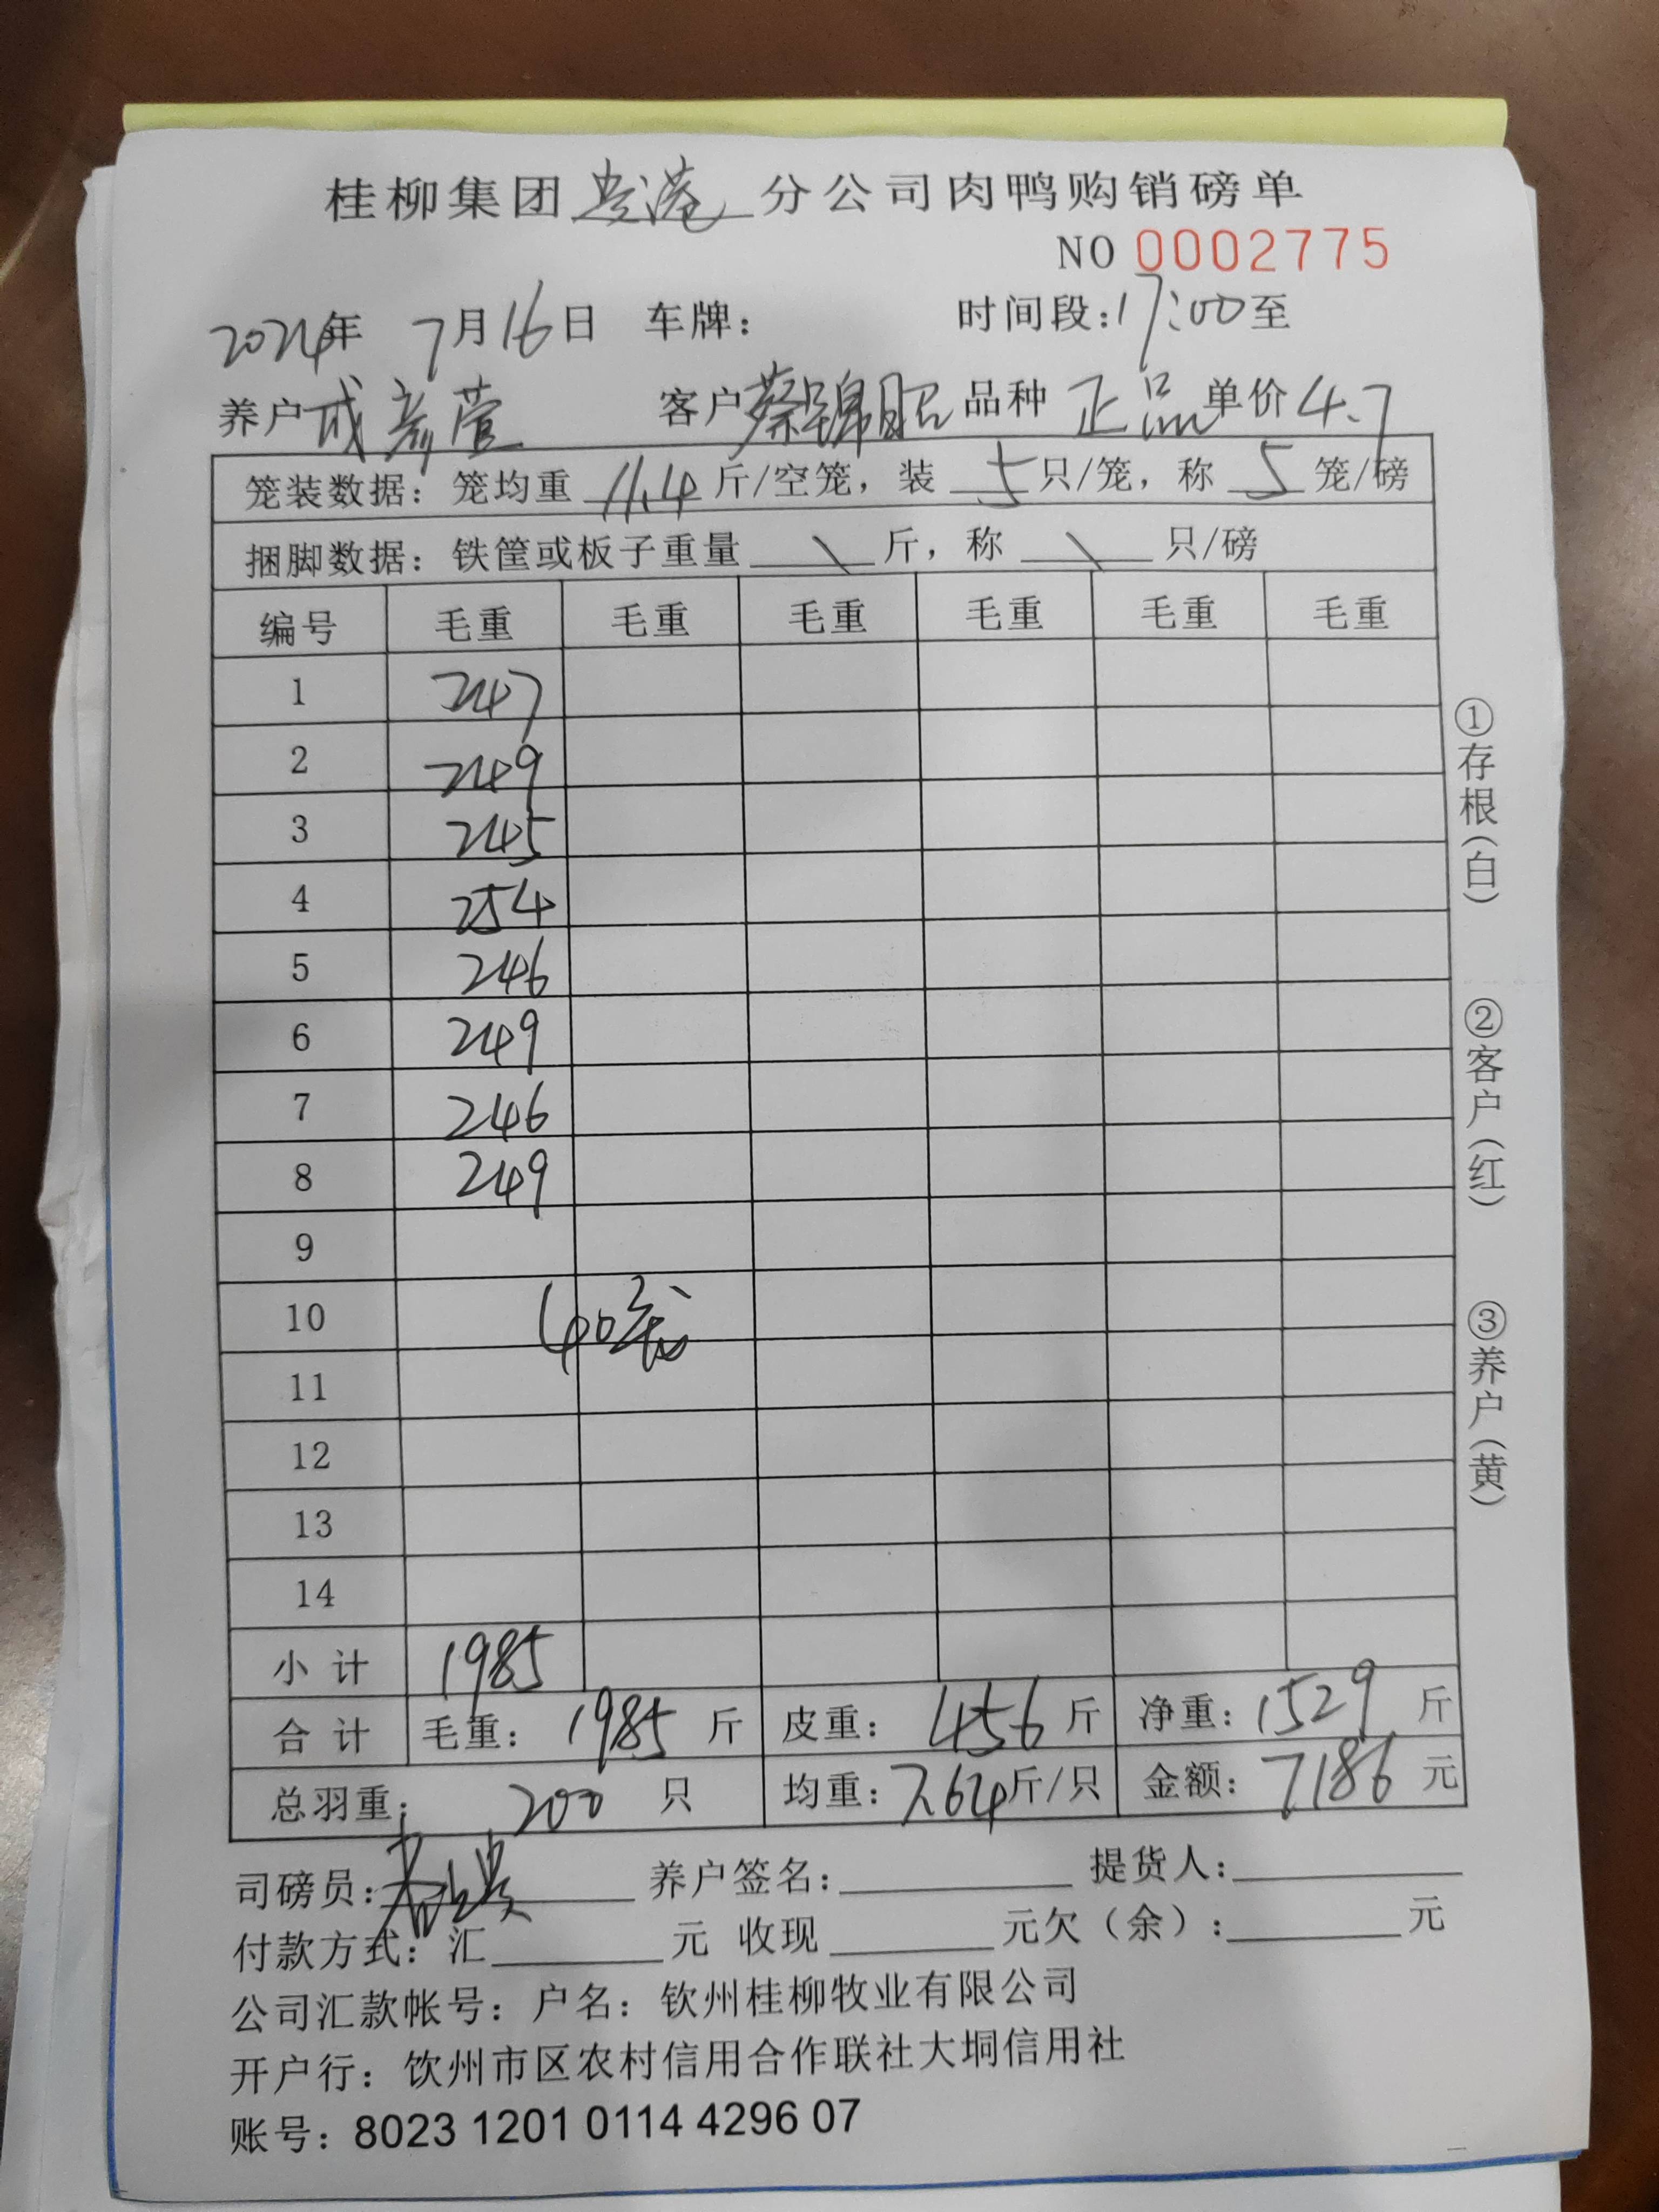 桂柳集团贵港分公司肉鸭购销磅单
NO 0002775
2024年 7月16日 车牌： 时间段：17:00至
养户 成彦萱 客户 蔡锦昭 品种 正品 单价 4.7
笼装数据：笼均重 11.4 斤/空笼，装 5 只/笼，称 5 笼/磅
捆脚数据：铁筐或板子重量 \ 斤，称 \ 只/磅
编号 毛重 毛重 毛重 毛重 毛重 毛重
1 247
2 249
3 245
4 254
5 246
6 249
7 246
8 249
9
10
40笼
11
12
13
14
小计 1985
合计 毛重：1985 斤 皮重：456 斤 净重：1529 斤
总羽重：200 只 均重：7.64 斤/只 金额：7186 元
①存根（白）
②客户（红）
③养户（黄）
司磅员： 养户签名： 提货人：
付款方式：汇 元 收现 元欠（余）： 元
公司汇款帐号：户名：钦州桂柳牧业有限公司
开户行：钦州市区农村信用合作联社大垌信用社
账号：8023 1201 0114 4296 07